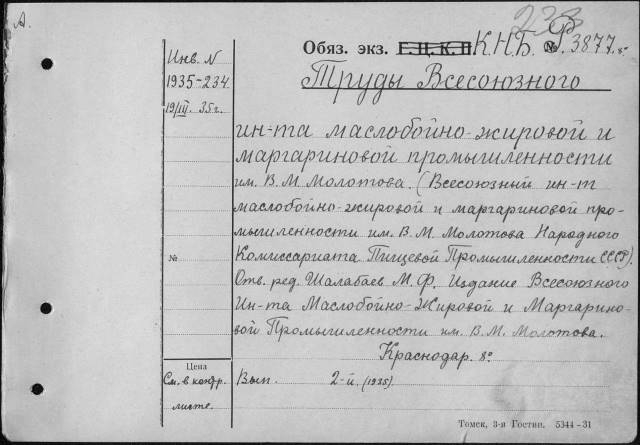 А.
233
Обяз. экз. Г.Ц.К.П К.Н.Б. № Ф. 3877.
Инв. N
1935-234
19/III. 35 г.
Труды Всесоюзного
ин-та маслобойно-жировой и
маргариновой промышленности
им. В. М. Молотова. (Всесоюзный ин-т
маслобойно-жировой и маргариновой про-
мышленности им. В. М. Молотова Народного
№
Комиссариата Пищевой Промышленности СССР).
Отв. ред. Шалабаев М. Ф. Издание Всесоюзного
Ин-та Маслобойно-Жировой и Маргарино-
вой Промышленности им. В. М. Молотова.
Краснодар. 8°
Цена
См. в контр.
листе.
Вып. 2-й. (1935).
Томск, 3-я Гостип. 5344-31